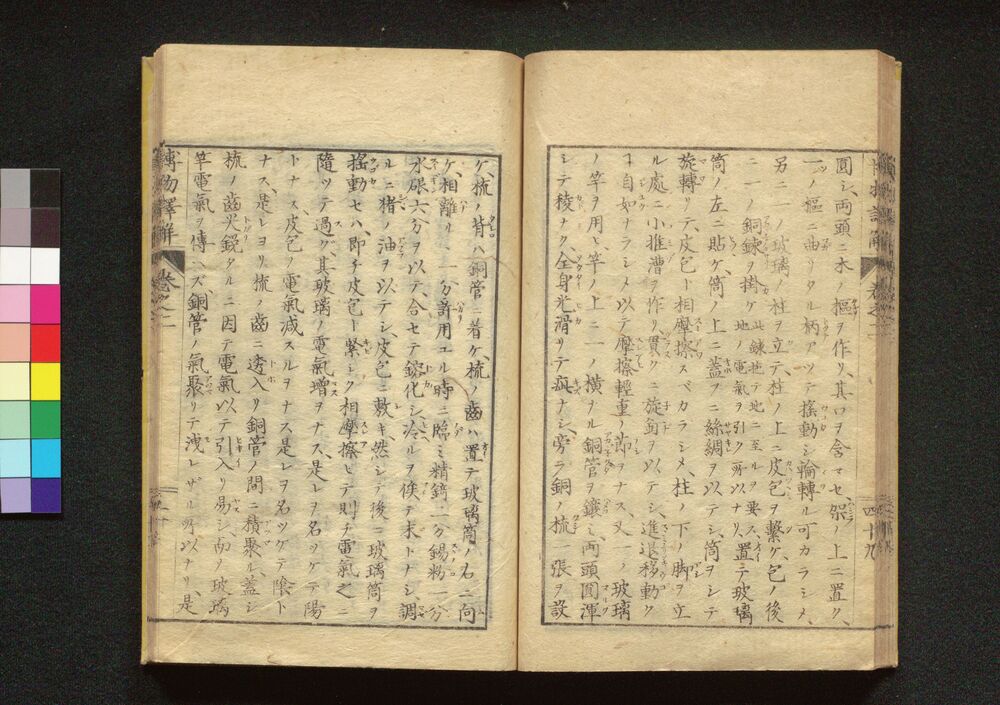 圓シ、両頭ニ木ノ樞ヲ作リ、其口ヲ含マセ、架ノ上ニ置ク、
一ノ樞ニ曲リタル柄アツテ搖動シ輪轉ル可カラシメ、
另ニ一ノ玻璃ノ柱ヲ立テ柱ノ上ニ皮包ヲ繫ケ、包ノ後
ニ一ノ銅錬ヲ掛ケ 此錬拖テ地ニ至ルヲ要ス 地ノ電氣ヲ引ク所以ナリ、置テ玻璃
筒ノ左ニ貼ケ、筒ノ上ニ蓋フニ絲綢ヲ以テシ、筒ヲシテ
旋轉リテ、皮包ト相摩擦スベカラシメ、柱ノ下ノ脚ヲ立
ル處ニ小推漕ヲ作リ貫クニ旋釘ヲ以テシ、進退移動ク
ヿ自如ヲラシメ以テ摩擦輕重ノ節ヲナス、又一ノ玻璃
ノ竿ヲ用ヒ、竿ノ上ニ一ノ橫ヲル銅管ヲ鑲ミ、両頭圓渾
シテ稜ナク、全身光滑リテ疵ナシ、旁ラ銅ノ梳一張ヲ設
四十九
ケ、梳ノ背ハ銅管ニ着ケ、梳ノ齒ハ置テ玻璃筒ノ右ニ向
ケ、相離ル、一分許用ユル時ニ臨ミ精錡二分錫粉一分
水硍六分ヲ以テ、合セテ鎔化シ、冷ルヲ俟テ末トナシ調
ルニ猪ノ油ヲ以テシ、皮包ニ敷キ、然シテ後ニ玻璃筒ヲ
搖動セハ、即チ皮包ト緊シク相摩擦ヒテ則チ電氣之ニ
隨ッテ過グ、其玻璃ノ電氣增ヲナス、是レヲ名ツケテ陽
トナス、皮包ノ電氣減スルヲナス是レヲ名ツケテ陰ト
ナス、是レヨリ梳ノ齒ニ透入リ銅管ノ間ニ積聚ル、蓋シ
梳ノ齒尖鋭タルニ因テ電氣以テ引入リ易シ、而ノ玻璃
竿電氣ヲ傳ヘズ、銅管ノ氣聚リテ洩レザル所以ナリ、是
博物譯解 卷之二